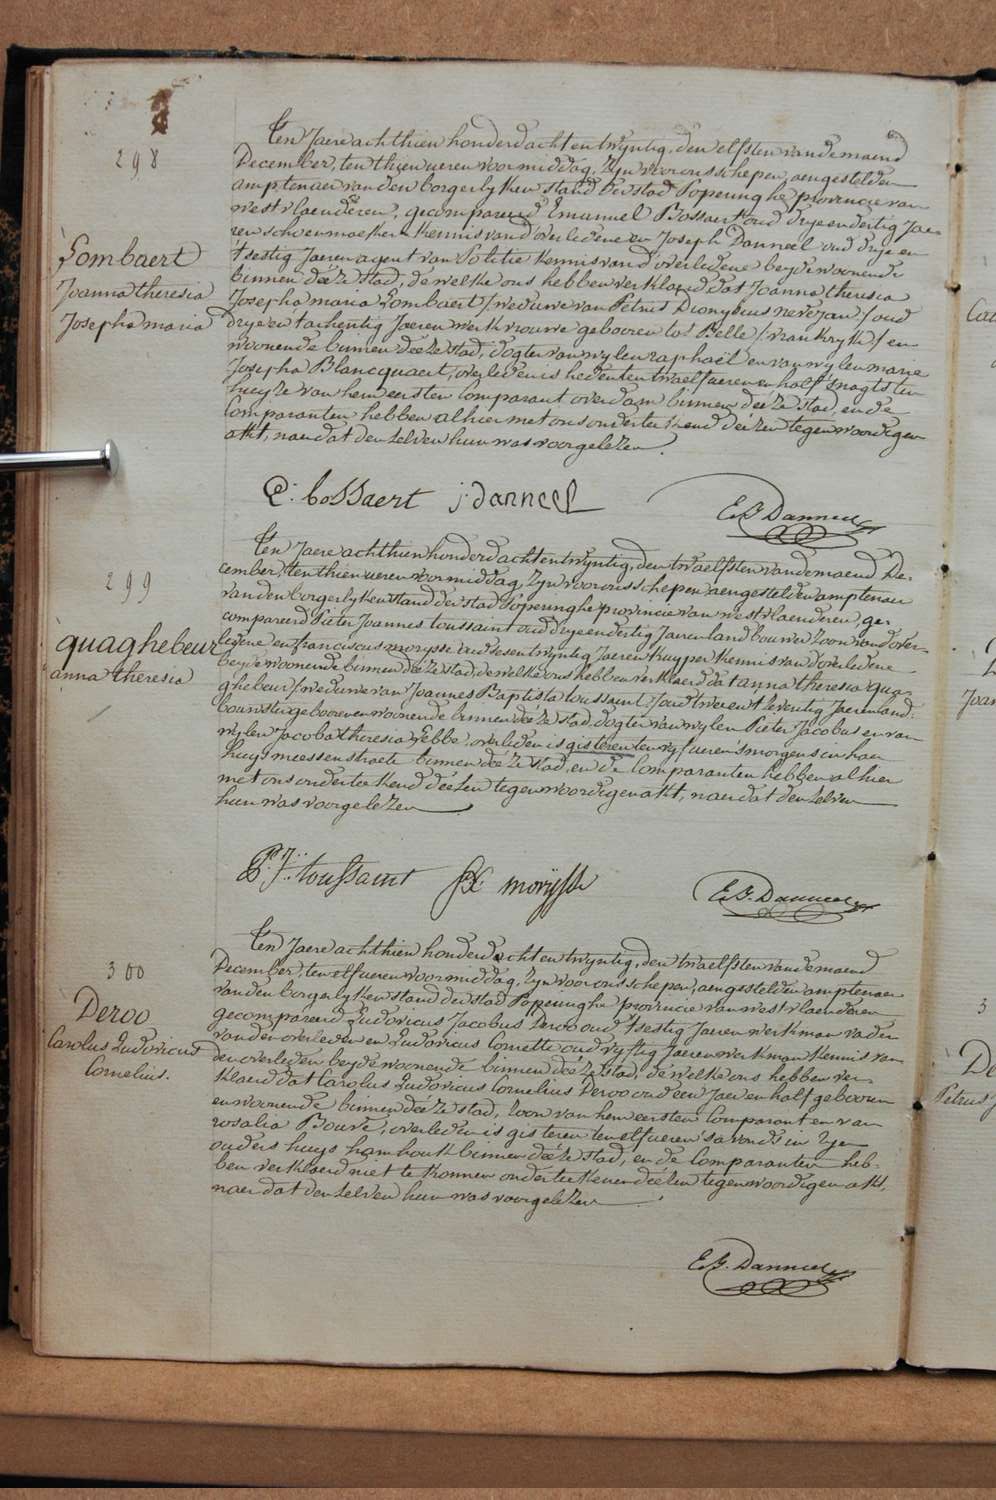 298
Lombaert
Joanna theresia
Josepha maria
Ten Jaere achthien honderd acht en twyntig, den elfsten van de maend
December, ten thien ueren voormiddag, zyn voor ons schepen, aengestelden
amptenaer van den borgerlyken stand der stad Poperinghe provincie van
westvlaenderen, gecompareerd Emanuel Bossaert oud dryendertig Jae-
ren schoenmaeker kennis van d'overledene en Joseph Danneel oud drye en
t'sestig Jaeren agent van Politie kennis van d'overledene beyde woonende
binnen déeze stad, dewelke ons hebben verklaerd dat Joanna theresia
Josepha maria Lombaert / weduwe van Petrus Dionysius / oud
drye en tachentig Jaeren werkvrouwe gebooren tot Belle / vrankryk / en
woonende binnen déeze stad, dogter van wylen raphaël en van wylen marie
Josepha Blancquaert, overleden is heden ten twaelf ueren en half s'nagts ten
huyze van hem eersten Comparant overdam binnen déeze stad, en de
Comparanten hebben alhier met ons onderteekend déezen tegenwoordigen
akt, naer dat den zelven hun was voorgelezen.
E: boSSaert j: danneel
E. B. Danneel
299
quaghebeur
anna theresia
Ten Jaere achthien honderd acht en twyntig, den twaelfsten van de maend De-
cember, ten thien ueren voormiddag, zyn voor ons schepen aengestelden amptenaer
van den borgerlyken stand der stad Poperinghe provincie van westvlaenderen, ge-
compareerd Pieter Joannes toussaint oud dryendertig Jaeren landbouwer zoon van d'over-
ledene en franciscus morysse oud sesentwyntig Jaeren kuyper kennis van d'overledene
beyde woonende binnen déeze stad, dewelke ons hebben verklaerd dat anna theresia qua-
ghebeur / weduwe van Joannes Baptista toussaint / oud tweentseventig Jaeren land-
bouwster gebooren en woonende binnen déeze stad, dogter van wylen Pieter Jacobus en van
wylen Jacoba theresia Lebbe, overleden is gisteren ten vyf ueren s'morgens in haer
huys meessenstraete binnen déeze stad, en de Comparanten hebben alhier
met ons onderteekend déezen tegenwoordigen akt, naer dat den zelven
hun was voorgelezen
P: J: toussaint F morysse
E. B. Danneel
300
Deroo
Carolus Ludovicus
Cornelius.
Ten Jaere achthien honderd acht en twyntig, den twaelfsten van de maend
December, ten elf ueren voormiddag, zyn voor ons schepen, aengestelden amptenaer
van den borgerlyken stand der stad Poperinghe provincie van westvlaenderen
gecompareerd Ludovicus Jacobus Deroo oud t'sestig Jaeren werkman vader
van den overleden en Ludovicus Cornette oud vyftig Jaeren werkman kennis van
den overleden beyde woonende binnen déeze stad, dewelke ons hebben ver-
klaerd dat Carolus Ludovicus Cornelius Deroo oud een Jaer en half gebooren
en woonende binnen déeze stad, zoon van hem eersten Comparant en van
rosalia Bouve, overleden is gisteren ten elf ueren s'avonds in zyn
ouders huys hamhouk binnen déeze stad, en de Comparanten heb-
ben verklaerd niet te konnen onderteekenen déezen tegenwoordigen akt,
naer dat den zelven hun was voorgelezen.
E. B. Danneel